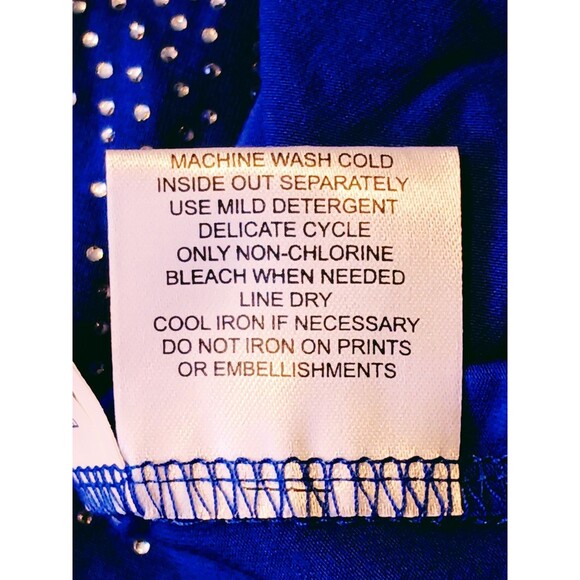 MACHINE WASH COLD
INSIDE OUT SEPARATELY
USE MILD DETERGENT
DELICATE CYCLE
ONLY NON-CHLORINE
BLEACH WHEN NEEDED
LINE DRY
COOL IRON IF NECESSARY
DO NOT IRON ON PRINTS
OR EMBELLISHMENTS